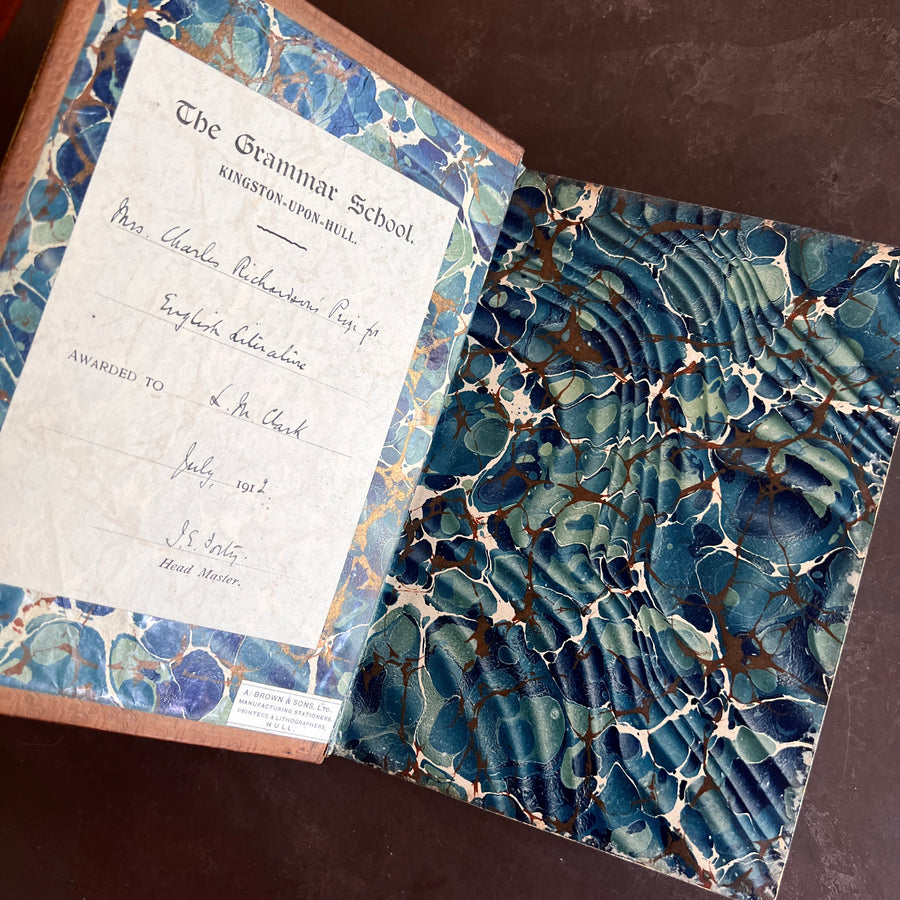 The Grammar School.
KINGSTON-UPON-HULL.
Mrs. Charles Richardson's Prize for
English Literature
AWARDED TO L. M. Clark
July, 1912.
J. E. Forty.
Head Master.
A. BROWN & SONS, LTD.,
MANUFACTURING STATIONERS,
PRINTERS & LITHOGRAPHERS,
HULL.